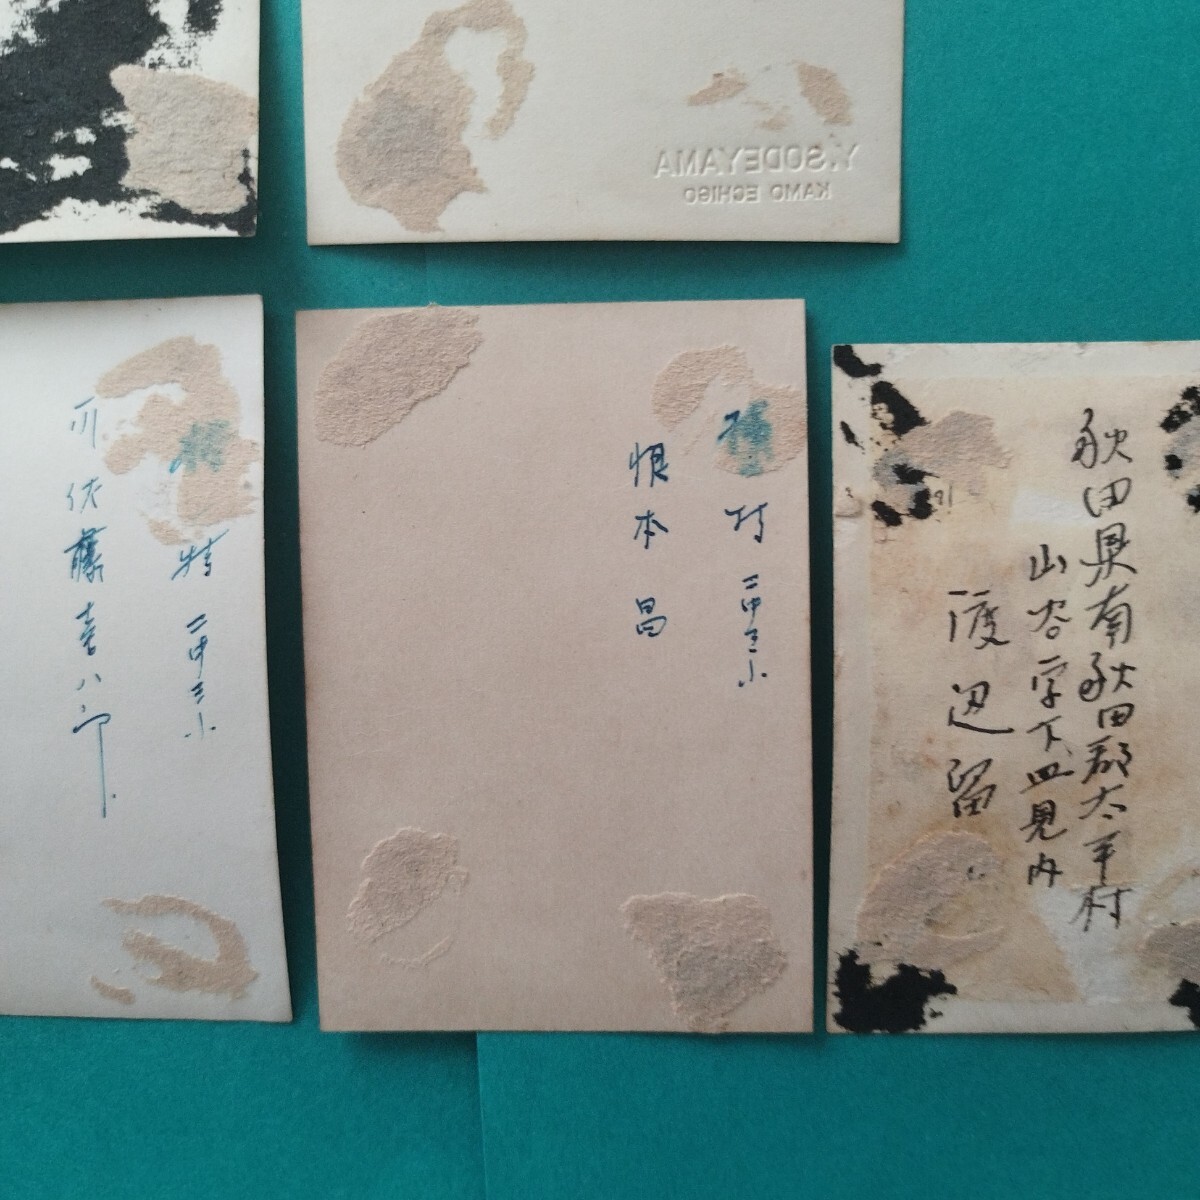 Y.SODEYAMA
KAMO ECHIGO
特 二中三小
伏藤喜八郎
村 二中三小
恨本昌
秋田県南秋田郡太平村
山谷字下皿見内
渡辺留